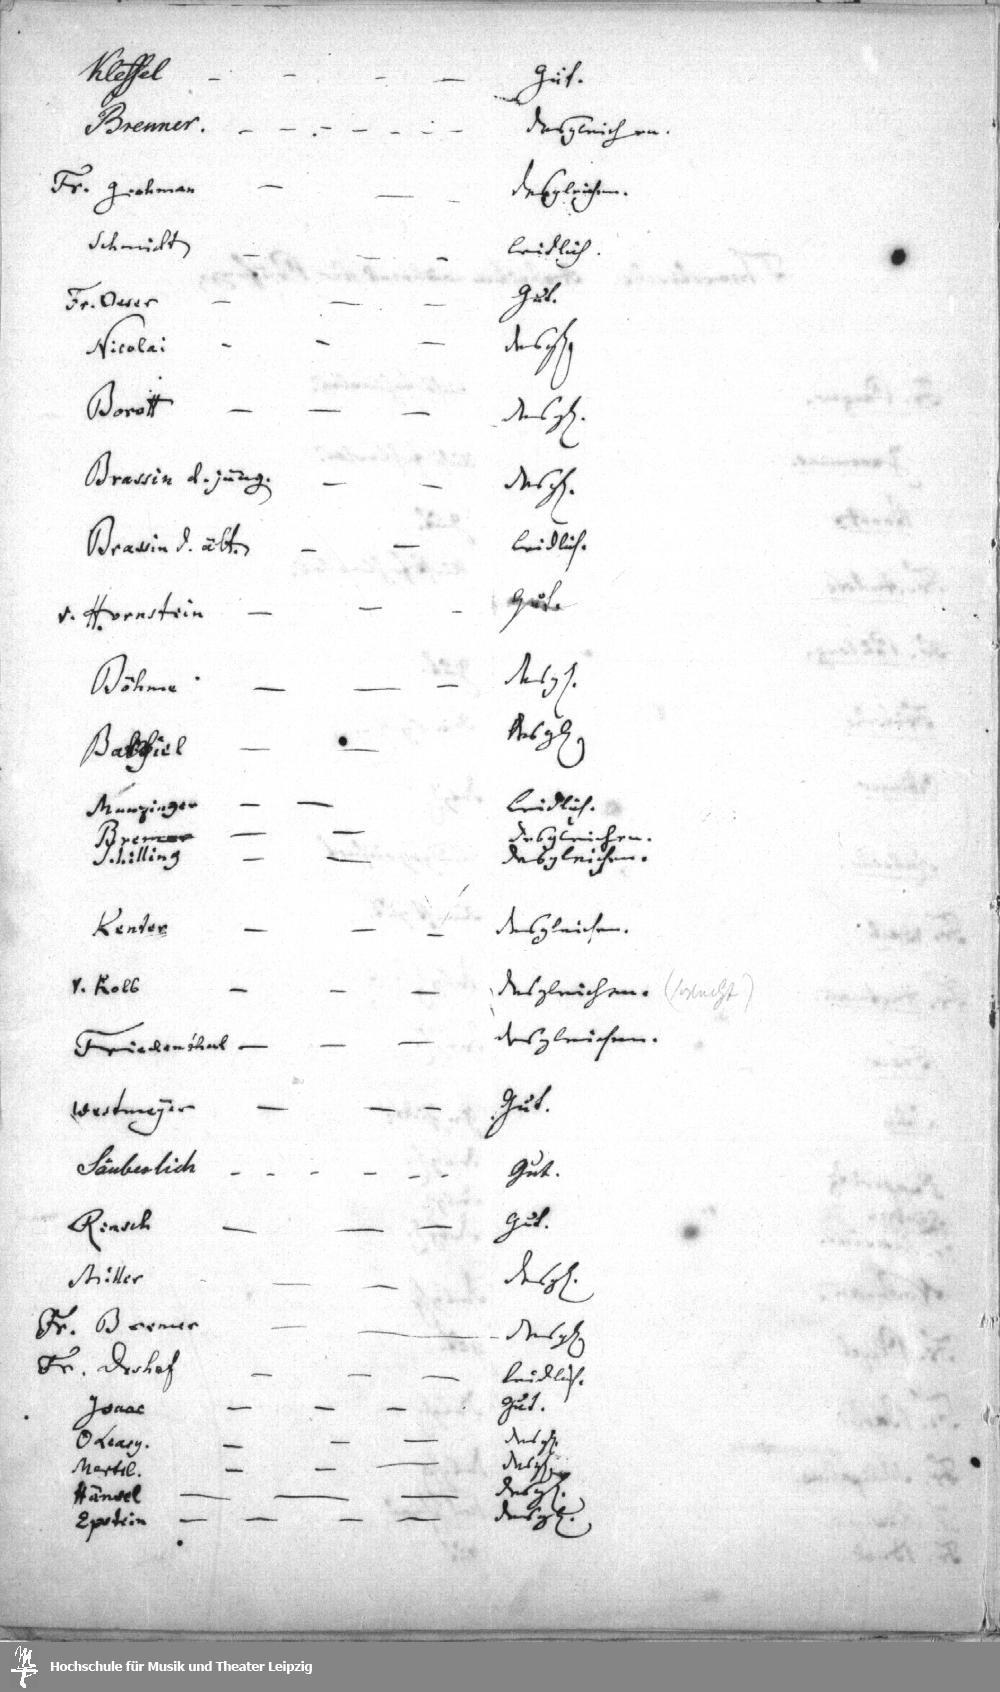 Kleffel - - - — Gut.
Brenner. - - - - - - - desgleichen.
Fr. Grohman — — - desgleichen.
Schmidt — — - leidlich.
Fr. Oeser — — — Gut.
Nicolai - - — desgl.
Borott — — — desgl.
Brassin d. jüng. — — desgl.
Brassin d. ält. — — leidlich.
v. Hornstein — — - Gut.
Böhme — — — desgl.
Bargiel — — desgl.
Munzinger — — leidlich.
Bremer — — desgleichen.
Schilling — — desgleichen.
Kenter — — - desgleichen.
v. Kolb — - — desgleichen.
Friedenthal — — — desgleichen.
Westmeÿer — — — Gut.
Säuberlich - - - - - - Gut.
Rinsch — — — Gut.
Miller — — desgl.
Fr. Bremer — — desgl.
Fr. — — — leidlich.
Isaac — — — Gut.
O Leary. — — — desgl.
Martel. — — — desgl.
Hänsel — — — desgl.
Epstein — — — — desgl.
Hochschule für Musik und Theater Leipzig